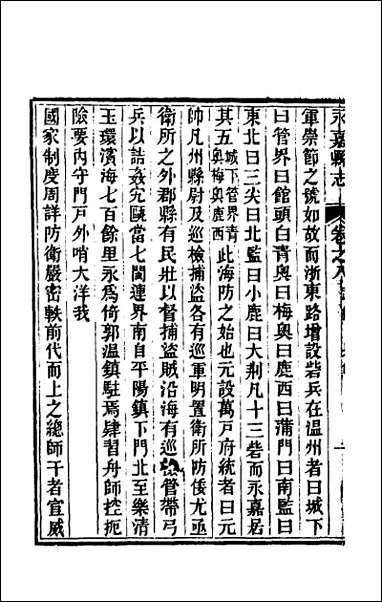 永嘉縣志 卷之八
軍崇節之號如故而浙東路增設砦兵在温州者曰城下
曰管界曰館頭曰青奥曰梅奥曰鹿西曰蒲門曰南監曰
東北曰三尖曰北監曰小鹿曰大荆凡十三砦而永嘉居
其五城下管界青奥梅奥鹿西此海防之始也元設萬戸府統者曰元
帥凡州縣尉及巡檢捕盜各有巡軍明置衛所防倭尤亟
衛所之外郡縣有民壯以督捕盜賊沿海有巡管帶弓
兵以詰姦宄甌當七閩連界南自平陽鎮下門北至樂清
玉環濱海七百餘里永為倚郭温鎮駐焉肄習舟師控扼
險要内守門戸外哨大洋我
國家制度周詳防衛嚴密軼前代而上之總師干者宣威